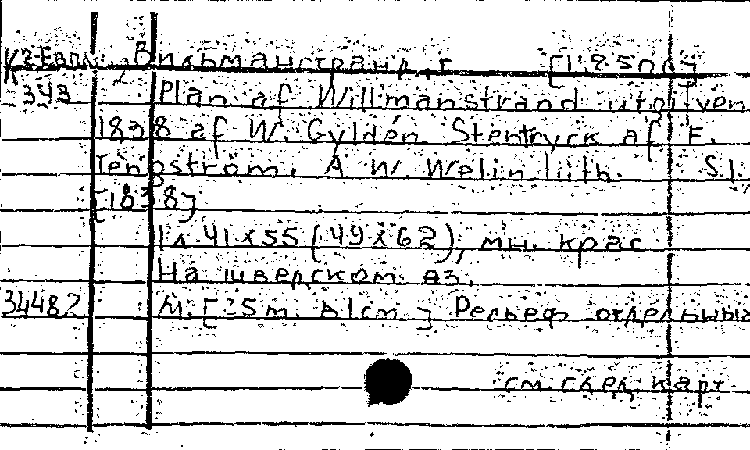 К2-Европ. Вильманстранд, г. [1:8500]
343 Plan af Willmanstrand utgifven
1838 af W. Gyldén Stentryck af F.
Tengström. A W. Welin lith. S.l.
[1838]
1 л 41x55 (49x62), мн. крас
На шведском яз.
34482 М. [85m. в 1cm.] Рельеф отдельный
см. след. карт